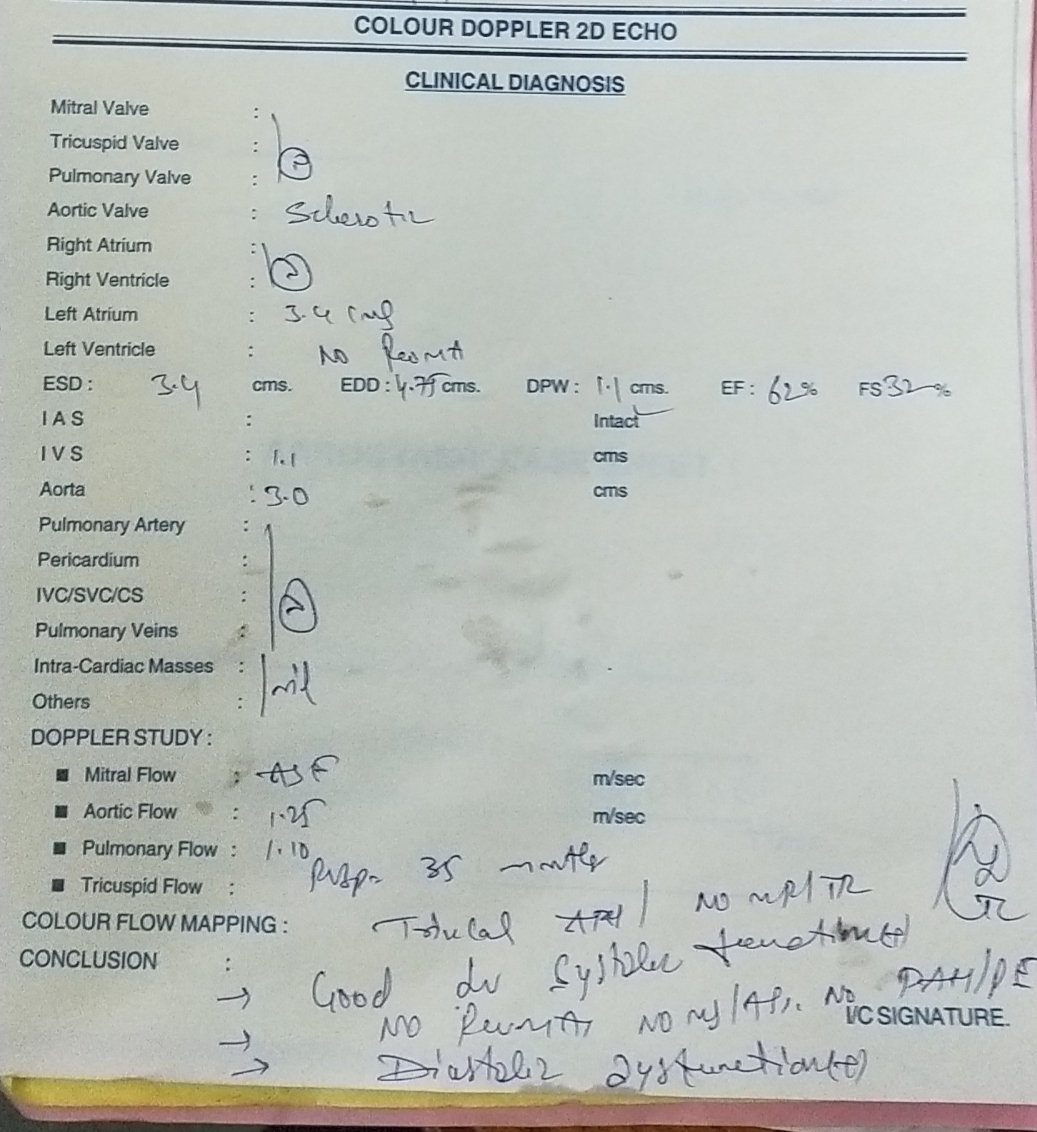 COLOUR DOPPLER 2D ECHO
CLINICAL DIAGNOSIS
Mitral Valve :
Tricuspid Valve :
Pulmonary Valve :
Aortic Valve : Sclerotic
Right Atrium :
Right Ventricle :
Left Atrium : 3.4 cms
Left Ventricle : No RWMA
ESD : 3.4 cms. EDD : 4.75 cms. DPW : 1.1 cms. EF : 62% FS 32%
IAS : Intact
IVS : 1.1 cms
Aorta : 3.0 cms
Pulmonary Artery :
Pericardium :
IVC/SVC/CS :
Pulmonary Veins :
Intra-Cardiac Masses : nil
Others :
DOPPLER STUDY :
■ Mitral Flow : m/sec
■ Aortic Flow : 1.25 m/sec
■ Pulmonary Flow : 1.10
■ Tricuspid Flow : RVSP= 35 mmHg
COLOUR FLOW MAPPING : No MR/TR
CONCLUSION :
→ Good LV Systolic function(+)
→ No RWMA, No MS/AS. No PAH/PE
I/C SIGNATURE.
→ Diastolic dysfunction(+)